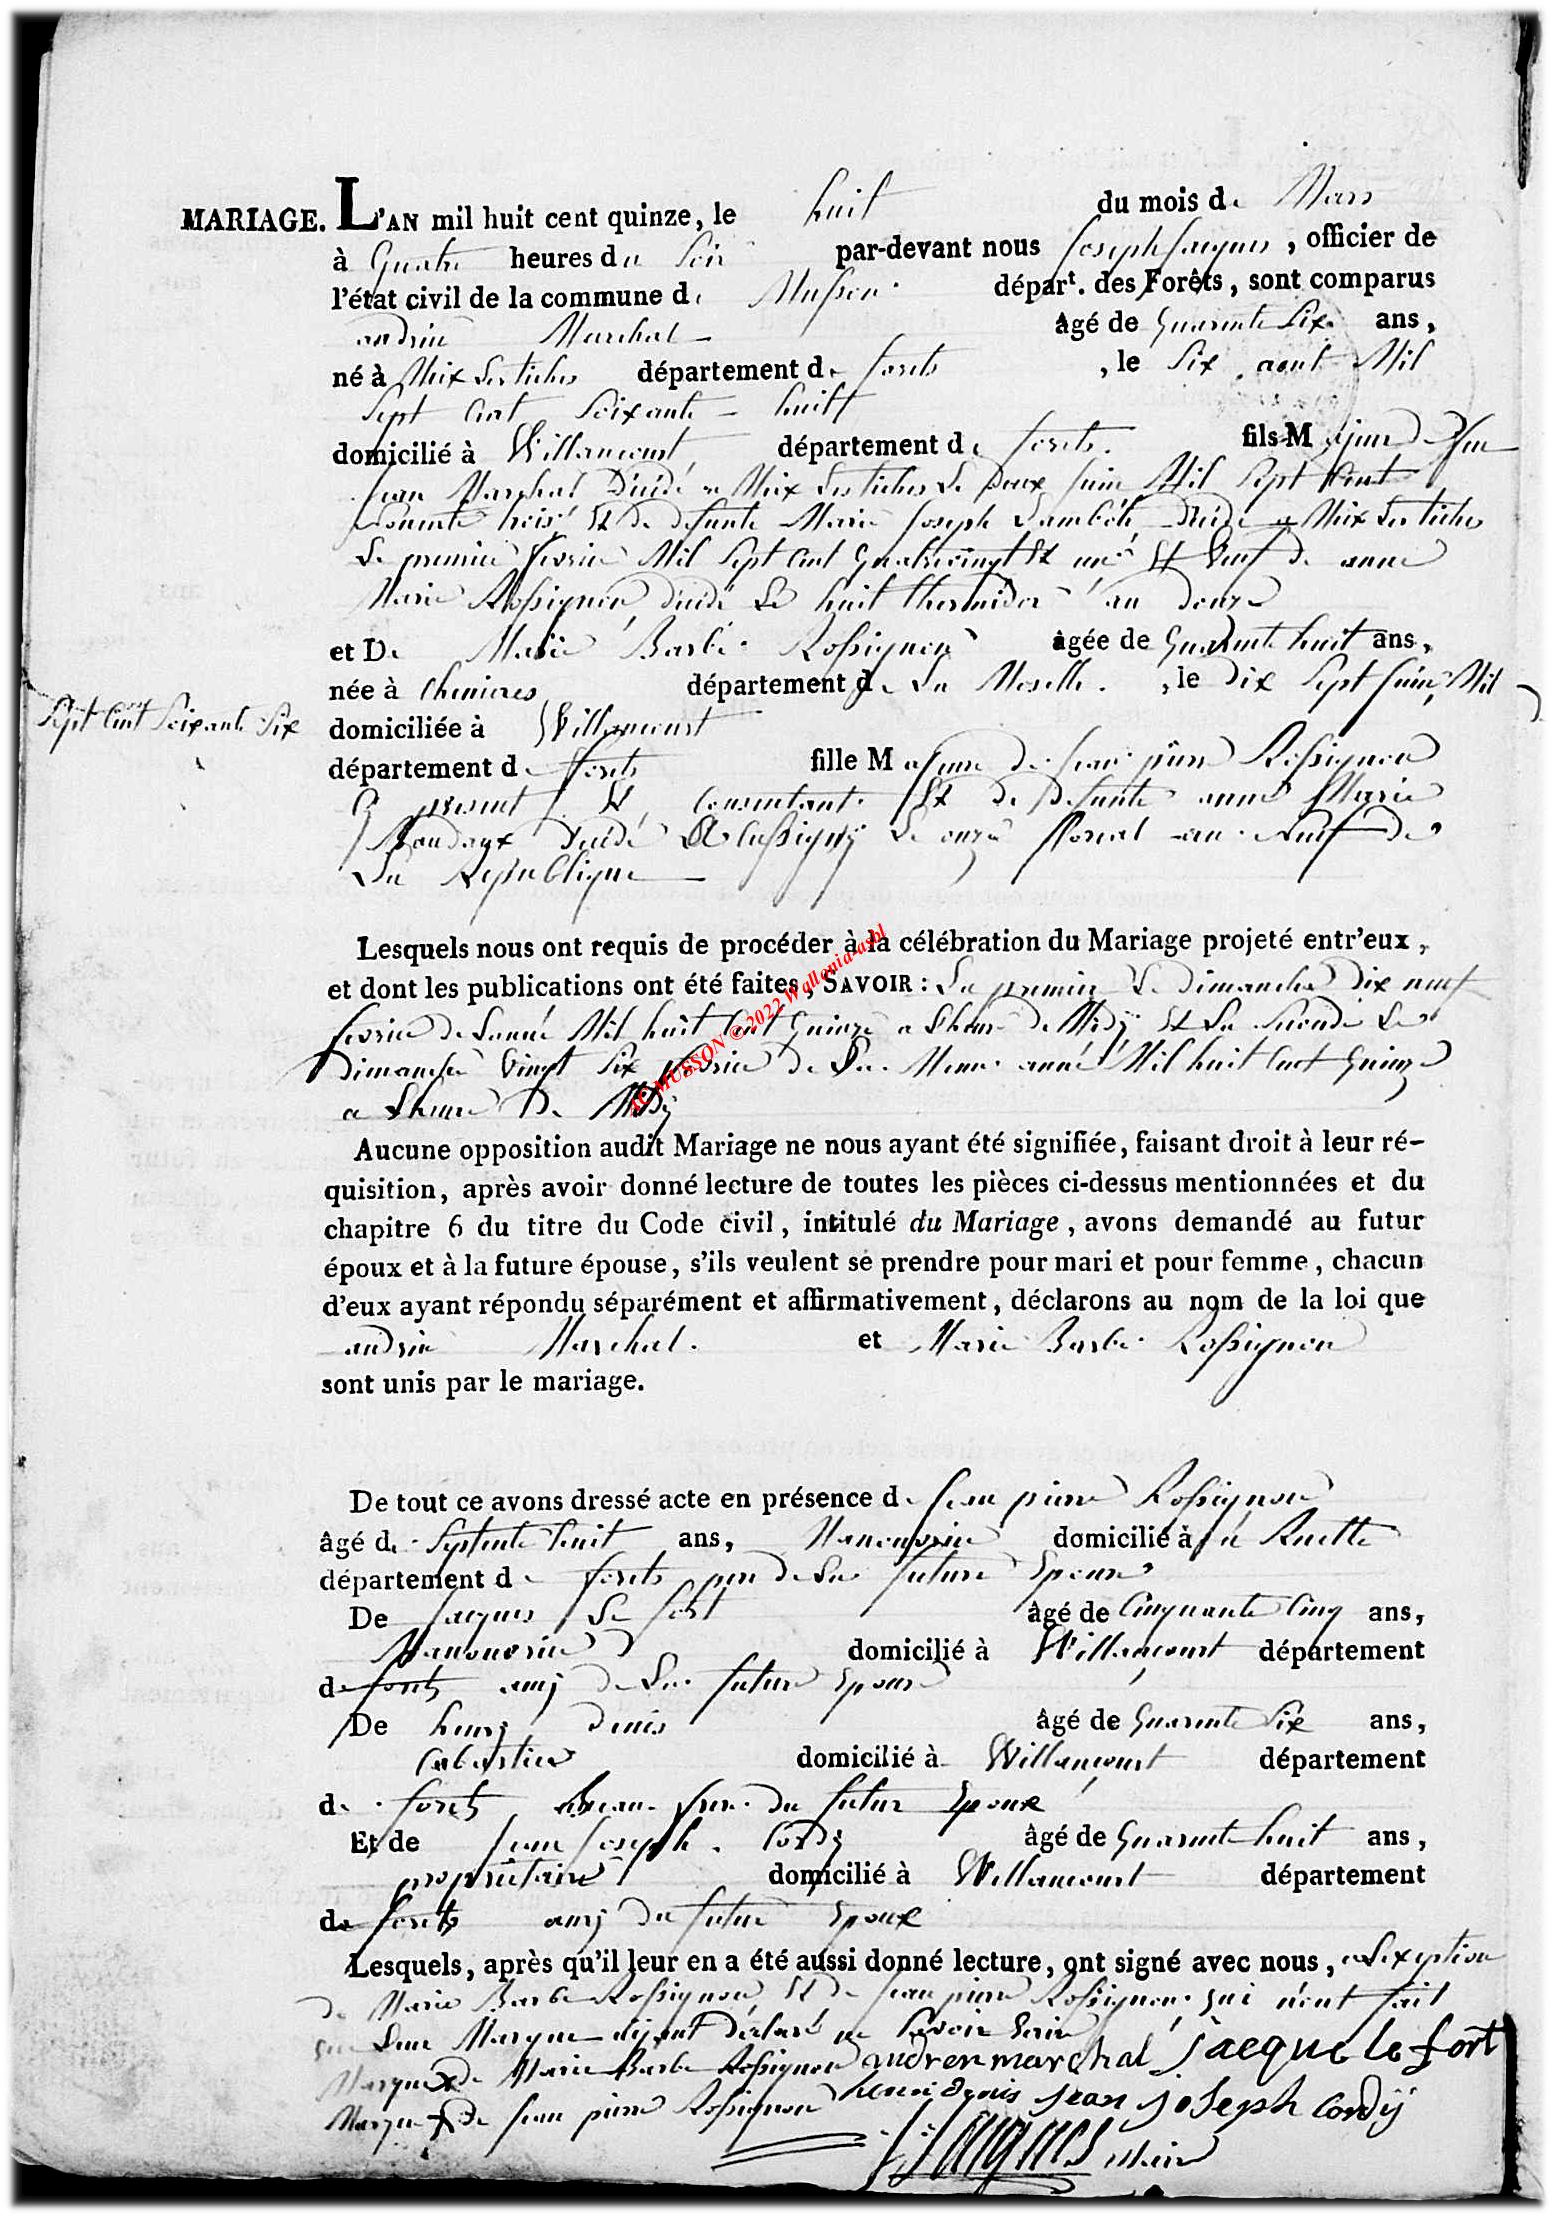 MARIAGE. L'AN mil huit cent quinze, le huit du mois de Mars
à Quatre heures du Soir par-devant nous Joseph Jacques, officier de
l'état civil de la commune de Musson départ. des Forêts, sont comparus
andrin Marchal âgé de Quarente Six ans,
né à Meix Les tiches département de forets, le Six aout Mil
Sept Cent Soixante huitt
domicilié à Willancourt département de forets. fils Majeur de feu
Jean Marchal Décédé a Meix Les tiches Le Deux Juin Mil Sept Cent
trois Et de defunte Marie Joseph Lambote Décédé a Meix Les tiches
Le premier fevrier Mil Sept Cent Quatrevingt Et une Et Veuf de anne
Marie Rossignon décédé Le huit thermidor an douze
et De Marie Barbe Rossignon âgée de Quarente huit ans,
née à Chenieres département de La Moselle, le Dix Sept Juin Mil
Sept Cent Soixante Six
domiciliée à Willancourt
département de forets fille Majeure de Jean pierre Rossignon
Cy present Et Consentant Et de Defunte anne Marie
décédé A Cussigny Le onze floreal an Neuf De
La Republique
Lesquels nous ont requis de procéder à la célébration du Mariage projeté entr'eux,
et dont les publications ont été faites, SAVOIR : La premiere Le dimanche Dix neuf
fevrier de Lanné Mil huit Cent Quinze a Lheure de Midy Et La Seconde Le
dimanche Vingt Six fevrier de La Meme anné Mil huit Cent Quinze
a Lheure De Midy
AC MUSSON © 2022 Wallonia-asbl
Aucune opposition audit Mariage ne nous ayant été signifiée, faisant droit à leur ré-
quisition, après avoir donné lecture de toutes les pièces ci-dessus mentionnées et du
chapitre 6 du titre du Code civil, intitulé du Mariage, avons demandé au futur
époux et à la future épouse, s'ils veulent se prendre pour mari et pour femme, chacun
d'eux ayant répondu séparément et affirmativement, déclarons au nom de la loi que
andrin Marchal. et Marie Barbe Rossignon
sont unis par le mariage.
De tout ce avons dressé acte en présence de Jean pierre Rossignon
âgé de Septente huit ans, Manouvrier domicilié à Ruette
département de forets pere de La future Epouse
De Jacques Le fort âgé de Cinquante Cinq ans,
Manouvrier domicilié à Willancourt département
de forets amy de La future Epouse
De henry denis âgé de Quarente Six ans,
Cabartier domicilié à Willancourt département
de forets Beau frere du futur Epoux
Et de Jean Joseph Cordy âgé de Quarente huit ans,
propriétaire domicilié à Willancourt département
de forets amy du futur Epoux
Lesquels, après qu'il leur en a été aussi donné lecture, ont signé avec nous, a Lexeption
de Marie Barbe Rossignon Et de Jean pierre Rossignon qui n'ont fait
que Leur Marque ayant déclaré ne Savoir Ecrire
Marque de Marie Barbe Rossignon andren marchal jacque le fort
Marque de Jean pierre Rossignon henri denis jean joseph Cordÿ
J: Jacques Maire